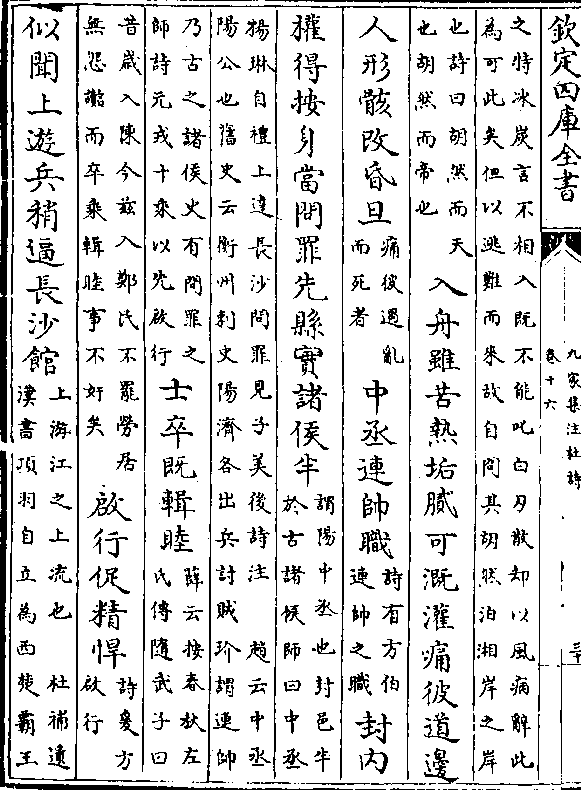 欽定四庫全書
九家集注杜詩
卷十六
之特冰炭言不相入既不能叱白刃散却以風病辭此
為可此矣但以逃難而來故自問其胡然泊湘岸之岸
也詩曰胡然而天
也胡然而帝也
入舟雖苦熱垢膩可溉灌痛彼道邊
人形骸改昏旦
痛彼遇亂
而死者
中丞連帥職
詩有方伯
連帥之職
封内
權得按身當問罪先縣實諸侯半
謂陽中丞也封邑半
於古諸候師曰中丞
揚琳自禮上達長沙問罪見子美後詩注 趙云中丞
陽公也舊史云衡州刺史陽濟各出兵討賊玠謂連帥
乃古之諸侯史有問罪之
師詩元戎十乘以先啟行
士卒既輯睦
薛云按春秋左
氏傳隨武子曰
昔歲入陳今兹入鄭氏不罷勞居
無怨讟而卒乘輯睦事不奸矣
啟行促精悍
詩爰方
啟行
似聞上遊兵稍逼長沙館
上游江之上流也 杜補遺
漢書項羽自立為西楚霸王